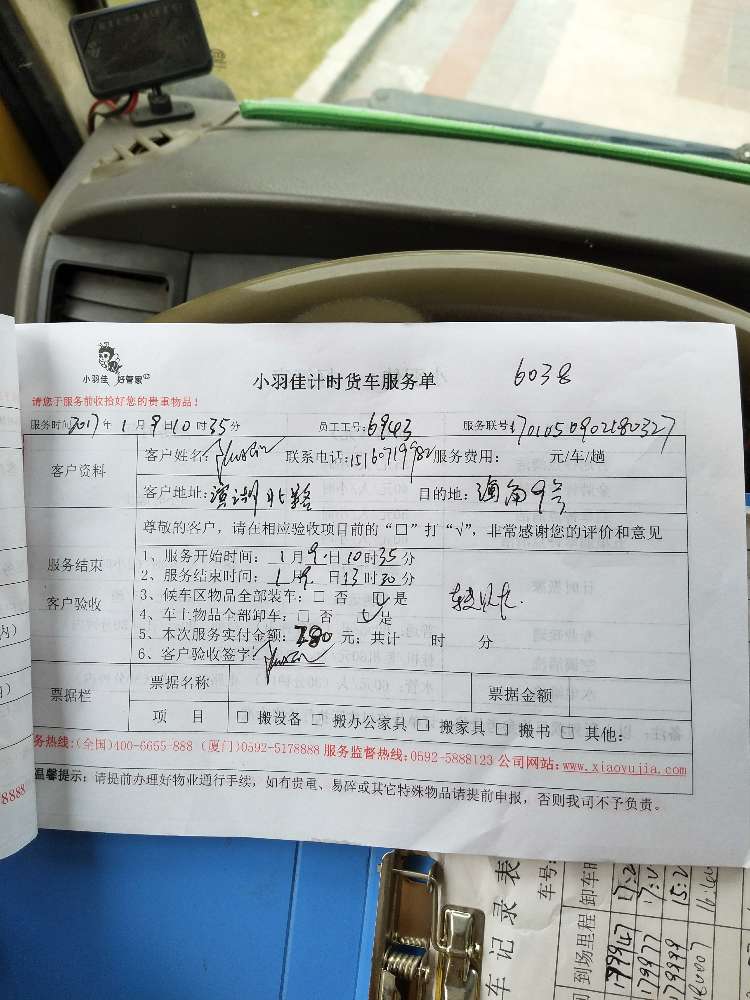 小羽佳 好管家
小羽佳计时货车服务单
6038
请您于服务前收拾好您的贵重物品!
服务时间2017年1月9日10时35分 员工工号:6943 服务联号:1701050902180327
客户资料
客户姓名: 联系电话:15160719982 服务费用: 元/车/趟
客户地址:滨湖北路 目的地:
尊敬的客户,请在相应验收项目前的“口”打“√”,非常感谢您的评价和意见
服务结束
客户验收
1、服务开始时间:1月9日10时35分
2、服务结束时间:1月9日13时30分
3、候车区物品全部装车:□ 否 □ 是
4、车上物品全部卸车:□ 否 □ 是
5、本次服务实付金额:280元;共计 时 分
6、客户验收签字:
票据栏
票据名称 票据金额
项 目 □ 搬设备 □ 搬办公家具 □ 搬家具 □ 搬书 □ 其他:
务热线:(全国)400-6655-888 (厦门)0592-5178888 服务监督热线:0592-5888123 公司网站:www.xiaoyujia.com
温馨提示:请提前办理好物业通行手续,如有贵重、易碎或其它特殊物品请提前申报,否则我司不予负责。
8888
车记录表
车号:
到场里程
卸车时
179947
179977